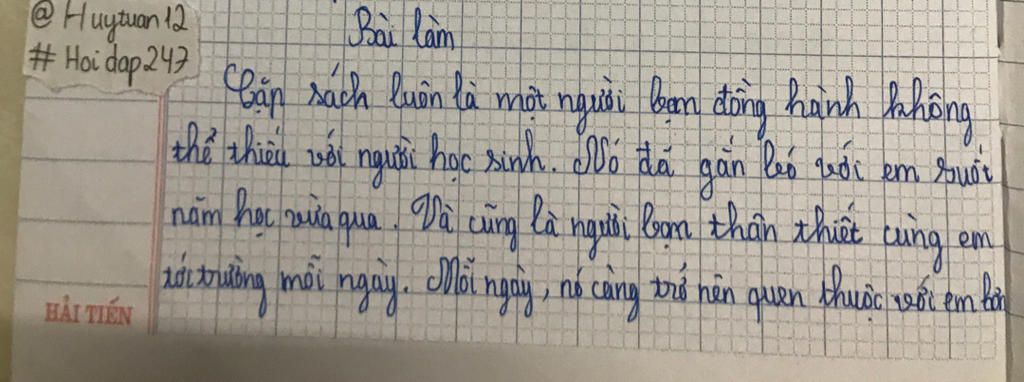 @ Huytuan12
# Hoidap247
Bài làm
Cặp sách luôn là một người bạn đồng hành không
thể thiếu với người học sinh. Nó đã gắn bó với em suốt
năm học vừa qua. Và cũng là người bạn thân thiết cùng em
tới trường mỗi ngày. Mỗi ngày, nó càng trở nên quen thuộc với em hơn
HẢI TIẾN